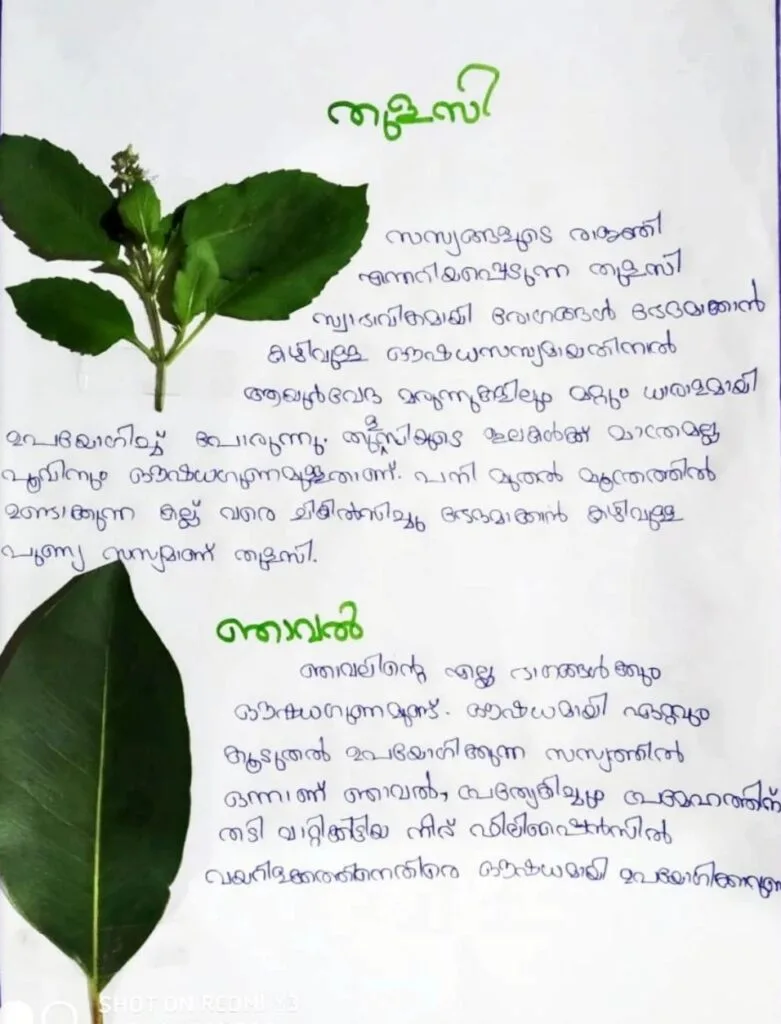 തുളസി
സസ്യങ്ങളുടെ രാജ്ഞി
എന്നറിയപ്പെടുന്ന തുളസി
സ്വാഭാവികമായി രോഗങ്ങൾ ഭേദമാക്കാൻ
കഴിവുള്ള ഔഷധസസ്യമായതിനാൽ
ആയുർവേദ മരുന്നുകളിലും മറ്റും ധാരാളമായി
ഉപയോഗിച്ച് പോരുന്നു. തുളസിയുടെ ഇലകൾക്ക് മാത്രമല്ല
പൂവിനും ഔഷധഗുണമുള്ളതാണ്. പനി മുതൽ മൂത്രത്തിൽ
ഉണ്ടാക്കുന്ന കല്ല് വരെ ചികിൽസിച്ചു ഭേദമാക്കാൻ കഴിവുള്ള
പുണ്യ സസ്യമാണ് തുളസി.
ഞാവൽ
ഞാവലിന്റെ എല്ലാ ഭാഗങ്ങൾക്കും
ഔഷധഗുണമുണ്ട്. ഔഷധമായി ഏറ്റവും
കൂടുതൽ ഉപയോഗിക്കുന്ന സസ്യത്തിൽ
ഒന്നാണ് ഞാവൽ, പ്രത്യേകിച്ചും പ്രമേഹത്തിന്
തടി വാറ്റിക്കിട്ടിയ നീര് ഫിലിപ്പൈൻസിൽ
വയറിളക്കത്തിനെതിരെ ഔഷധമായി ഉപയോഗിക്കുന്നു
SHOT ON REDMI Y3